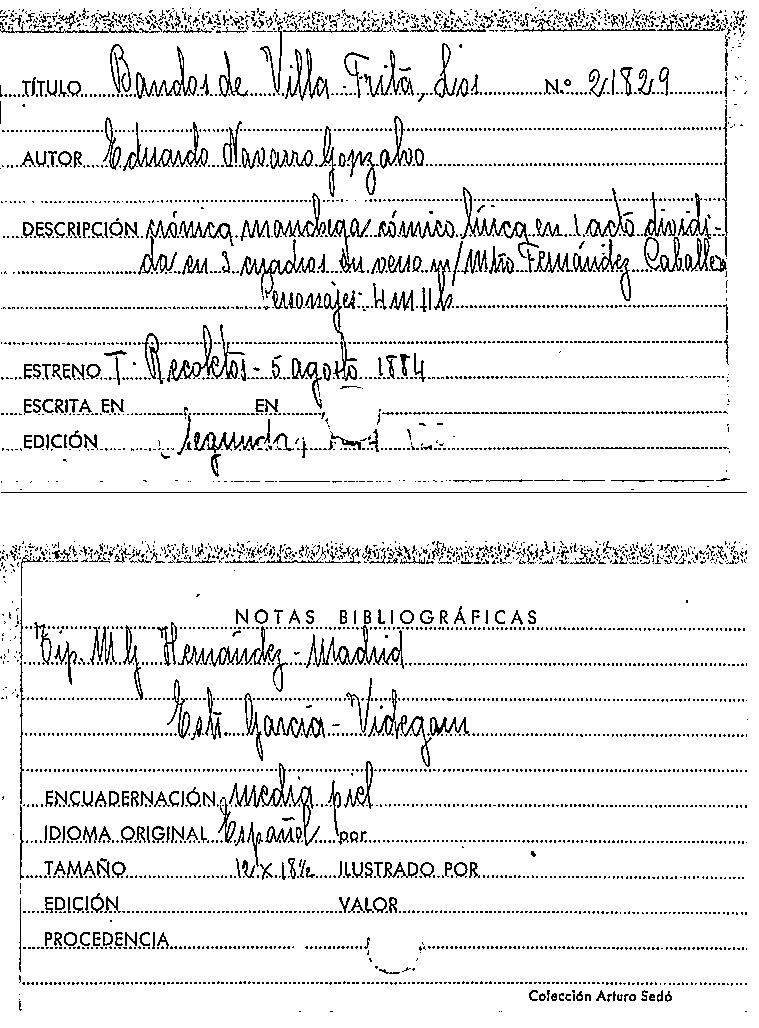 TÍTULO Bandos de Villa-Frita, Los N.º 21829
AUTOR Eduardo Navarro Gonzalvo
DESCRIPCIÓN crónica manchega cómico lírica en 1 acto dividi-
da en 3 cuadros en verso m/ Mtro Fernández Caballero
Personajes: 4 m 11 h
ESTRENO T. Recoletos - 5 agosto 1884
ESCRITA EN EN
EDICIÓN Segunda,
NOTAS BIBLIOGRÁFICAS
Tip. M G Hernández - Madrid
Edit. García - Videgain
ENCUADERNACIÓN media piel
IDIOMA ORIGINAL Español por
TAMAÑO 12 x 18½ ILUSTRADO POR
EDICIÓN VALOR
PROCEDENCIA
Colección Arturo Sedó